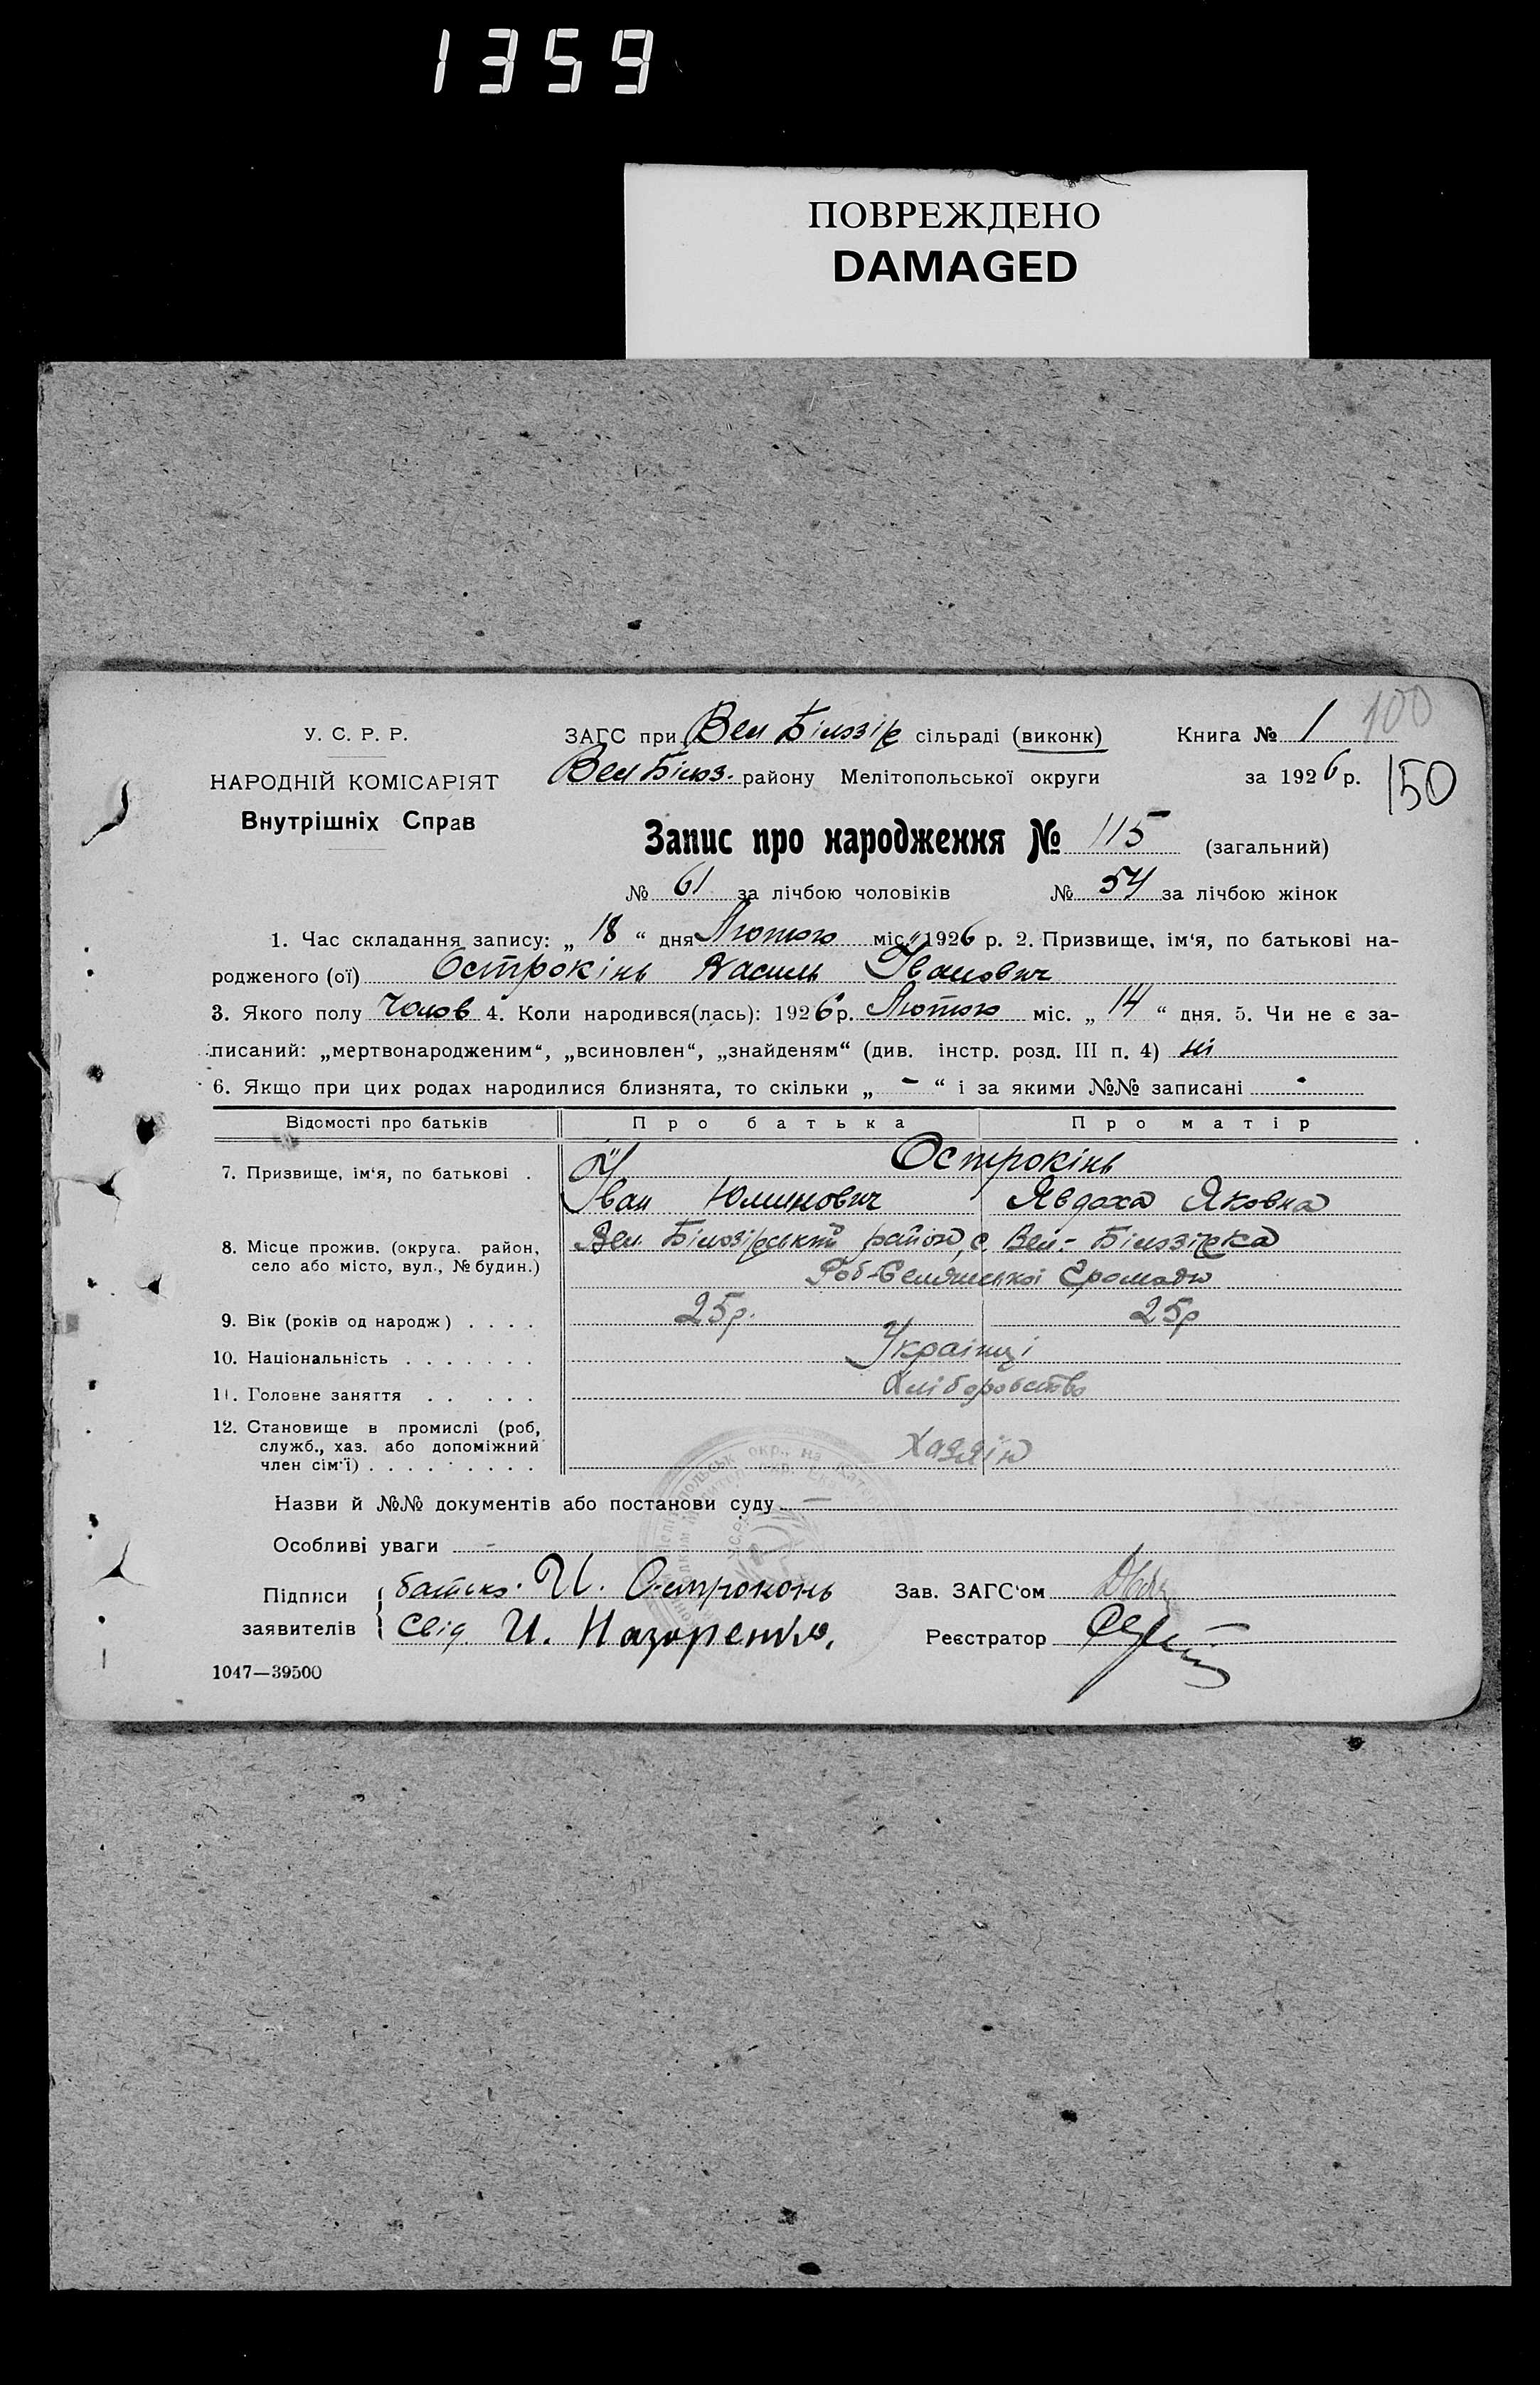 1359
ПОВРЕЖДЕНО
DAMAGED
100
У. С. Р. Р.
НАРОДНІЙ КОМІСАРІЯТ
Внутрішніх Справ
ЗАГС при Вел Білозір сільраді (виконк)
Книга № 1
Вел Білоз. району Мелітопольської округи
за 1926 р.
150
Запис про народження № 115 (загальний)
№ 61 за лічбою чоловіків № 54 за лічбою жінок
1. Час складання запису: „ 18 “ дня Лютого міс. 1926 р. 2. Призвище, ім‘я, по батькові на-
родженого (ої) Острокінь Василь Іванович
3. Якого полу Чолов 4. Коли народився(лась): 1926 р. Лютого міс. „ 14 “ дня. 5. Чи не є за-
писаний: „мертвонародженим“, „всиновлен“, „знайденям“ (див. інстр. розд. III п. 4) ні
6. Якщо при цих родах народилися близнята, то скільки „ - “ і за якими №№ записані -
Відомості про батьків Про батька Про матір
7. Призвище, ім‘я, по батькові . Острокінь
Іван Юлинович Явдоха Яковна
8. Місце прожив. (округа. район,
село або місто, вул., № будин.)
Вел. Білозірський район, с Вел.- Білозірка
Роб-Селянської Громади
9. Вік (років од народж) . . . . 25р. 25р
10. Національність . . . . . . . Українці
11. Головне заняття . . . . . Хліборобство
12. Становище в промислі (роб,
служб., хаз. або допоміжний
член сім‘ї) . . . . . . . . . Хазяїн
Назви й №№ документів або постанови суду —
Особливі уваги -
Підписи
заявителів
батько. И. Остроконь
Свід. И. Назаренко.
Зав. ЗАГС‘ом
Реєстратор
1047—39500